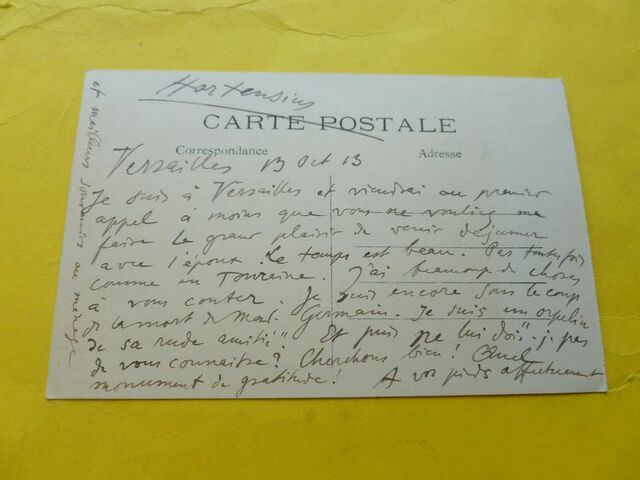 Hortensius
CARTE POSTALE
Correspondance
Adresse
Versailles 13 Oct 13
Je suis à Versailles et viendrai au premier
appel à moins que vous ne vouliez me
faire le grand plaisir de venir déjeuner
avec l'époux. Le temps est beau. Pas toutefois
comme en Touraine. J'ai beaucoup de choses
à vous conter. Je suis encore sous le coup
de la mort de Mad. Germain. Je suis un orphelin
de sa rude amitié". Et puis ne lui dois-je pas
de vous connaitre? Cherchons bien! Quel
monument de gratitude! A vos pieds affectueusement
et meilleurs souvenirs au ménage